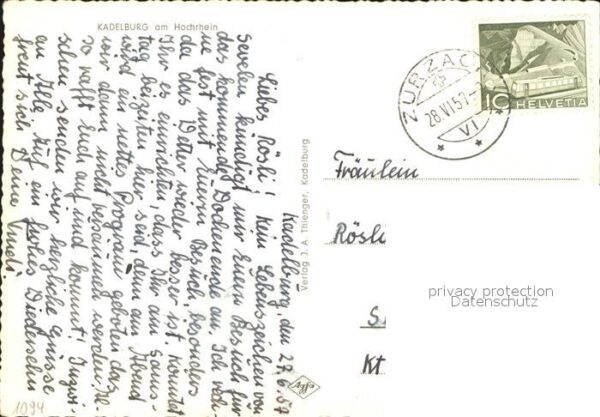 KADELBURG am Hochrhein
Kadelburg, den 27.6.57
Liebes Rösli! Kein Lebenszeichen von
Sevelen kündigt mir Euren Besuch für
das kommende Wochenende an. Ich rech-
ne fest mit Eurem Besuch, besonders
da das Wetter wieder besser ist. Könnt
Ihr es einrichten, dass Ihr am Sams-
tag beizeiten hier seid, denn am Abend
wird ein nettes Programm geboten, das
wir dann nicht versäumen werden. Ja
so rafft Euch auf und kommt! Inzwi-
schen senden wir herzliche Grüsse
an Alle. Auf ein frohes Wiedersehen
freut sich Deine Trudi.
Verlag J. A. Thienger, Kadelburg
ZURZACH
28.VI.57
VI
10 HELVETIA
Fräulein
Rösli
S
Kt
privacy protection
Datenschutz
1094